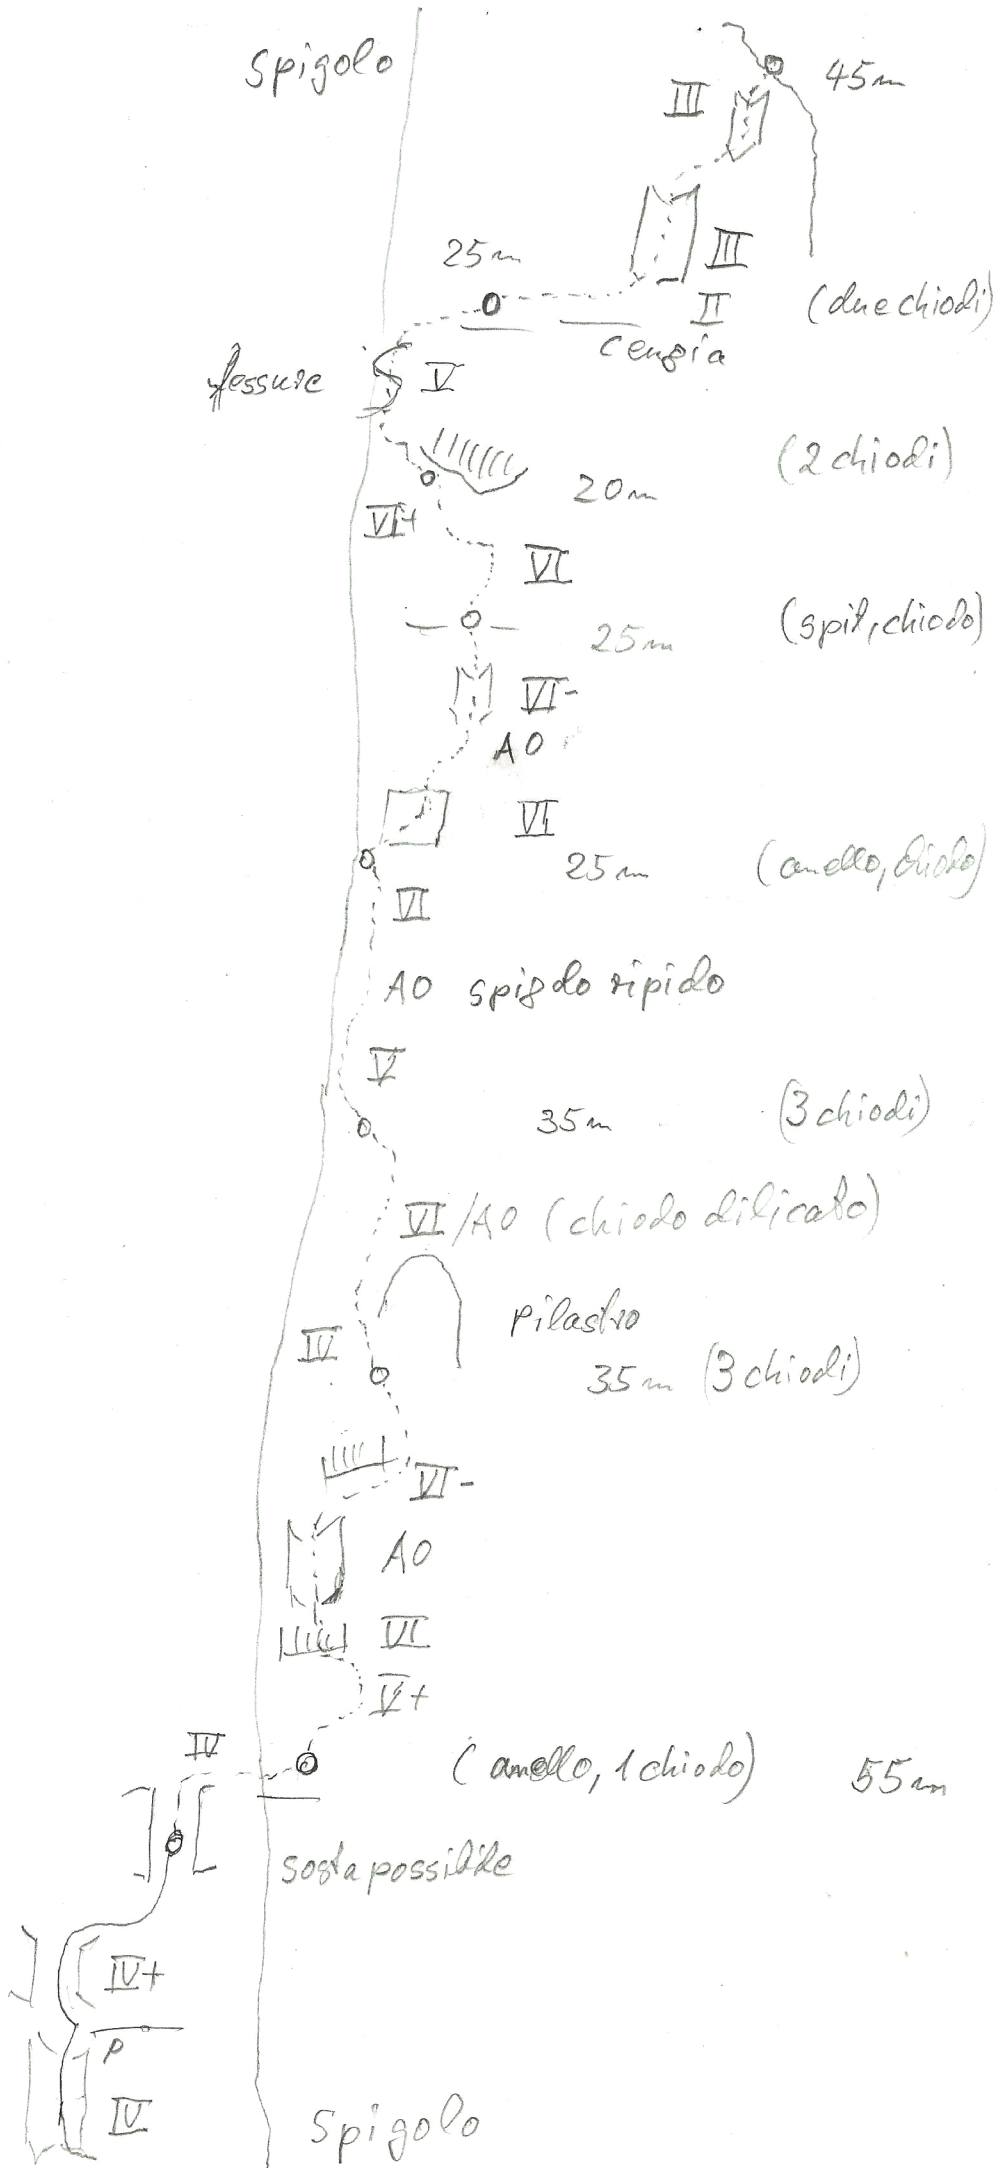 Spigolo
45m
III
III
25m
II
(due chiodi)
cengia
fessure
V
(2 chiodi)
20m
VI+
VI
(spit, chiodo)
25m
VI-
A0
VI
(anello, chiodo)
25m
VI
A0 spigolo ripido
V
35m
(3 chiodi)
VI/A0 (chiodo dilicato)
pilastro
IV
35m (3 chiodi)
VI-
A0
VI
V+
IV
(anello, 1 chiodo)
55m
sosta possibile
IV+
P
IV
Spigolo